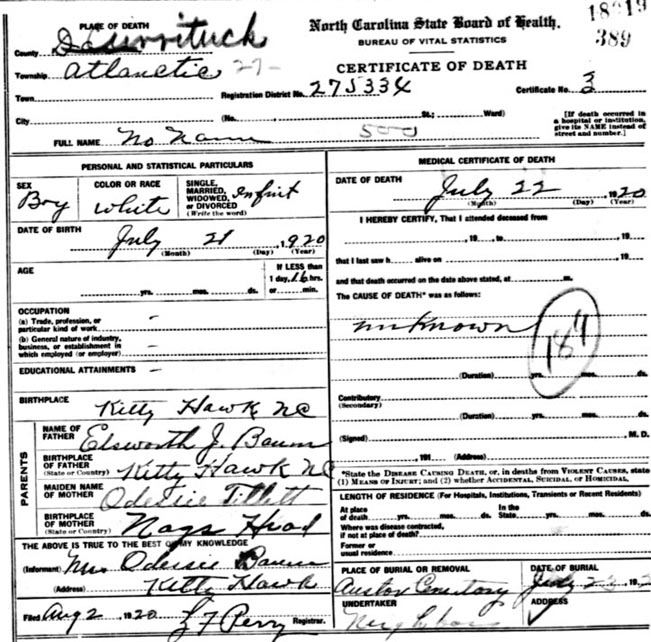 18919
389
PLACE OF DEATH
North Carolina State Board of Health.
BUREAU OF VITAL STATISTICS
CERTIFICATE OF DEATH
County Currituck
Township Atlanetic 27-
Registration District No. 275334
Certificate No. 3
Town
City (No. St.; Ward)
[If death occurred in a hospital or institution, give its NAME instead of street and number.]
FULL NAME No Name
500
PERSONAL AND STATISTICAL PARTICULARS
SEX Boy
COLOR OR RACE White
SINGLE, MARRIED, WIDOWED, or DIVORCED (Write the word) Infint
DATE OF BIRTH July 21, 1920
(Month) (Day) (Year)
AGE yrs. mos. ds.
If LESS than 1 day, 16 hrs. or min.
OCCUPATION
(a) Trade, profession, or particular kind of work -
(b) General nature of industry, business, or establishment in which employed (or employer) -
EDUCATIONAL ATTAINMENTS -
BIRTHPLACE Kitty Hawk NC
PARENTS
NAME OF FATHER Elsworth J. Baum
BIRTHPLACE OF FATHER (State or Country) Kitty Hawk NC
MAIDEN NAME OF MOTHER Odessie Tillett
BIRTHPLACE OF MOTHER (State or Country) Nags Head
THE ABOVE IS TRUE TO THE BEST OF MY KNOWLEDGE
(Informant) Mrs Odessie Baum
(Address) Kitty Hawk
Filed Aug 2, 1920 Perry Registrar.
MEDICAL CERTIFICATE OF DEATH
DATE OF DEATH July 22, 1920
(Month) (Day) (Year)
I HEREBY CERTIFY, That I attended deceased from
, 19 , to , 19
that I last saw h alive on , 19
and that death occurred on the date above stated, at m.
The CAUSE OF DEATH* was as follows:
unknown
189
(Duration) yrs. mos. ds.
Contributory (Secondary)
(Duration) yrs. mos. ds.
(Signed) M. D.
191 (Address)
*State the DISEASE CAUSING DEATH, or, in deaths from VIOLENT CAUSES, state (1) MEANS OF INJURY; and (2) whether ACCIDENTAL, SUICIDAL, or HOMICIDAL.
LENGTH OF RESIDENCE (For Hospitals, Institutions, Transients or Recent Residents)
At place of death yrs. mos. ds. In the State yrs. mos. ds.
Where was disease contracted, if not at place of death?
Former or usual residence
PLACE OF BURIAL OR REMOVAL Austin Cemetary
DATE OF BURIAL July 23, 192
UNDERTAKER Neighbors
ADDRESS